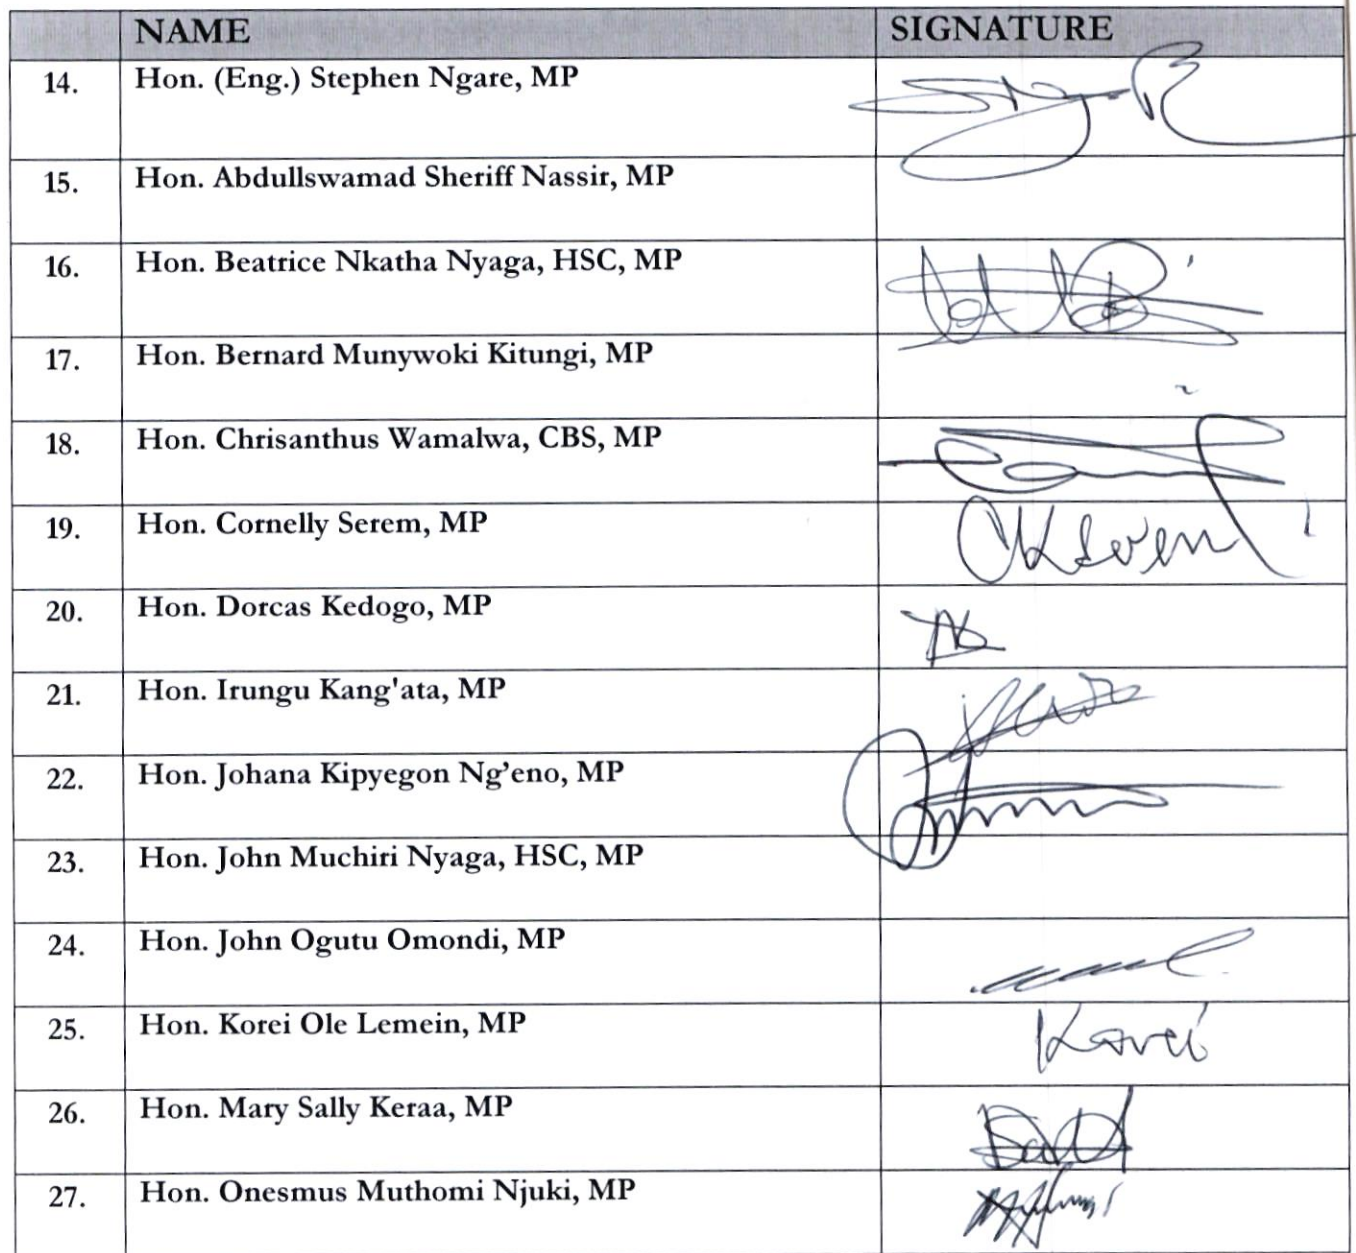 NAME SIGNATURE
14. Hon. (Eng.) Stephen Ngare, MP
15. Hon. Abdullswamad Sheriff Nassir, MP
16. Hon. Beatrice Nkatha Nyaga, HSC, MP
17. Hon. Bernard Munywoki Kitungi, MP
18. Hon. Chrisanthus Wamalwa, CBS, MP
19. Hon. Cornelly Serem, MP CKSerem
20. Hon. Dorcas Kedogo, MP
21. Hon. Irungu Kang'ata, MP
22. Hon. Johana Kipyegon Ng’eno, MP
23. Hon. John Muchiri Nyaga, HSC, MP
24. Hon. John Ogutu Omondi, MP
25. Hon. Korei Ole Lemein, MP Korei
26. Hon. Mary Sally Keraa, MP
27. Hon. Onesmus Muthomi Njuki, MP